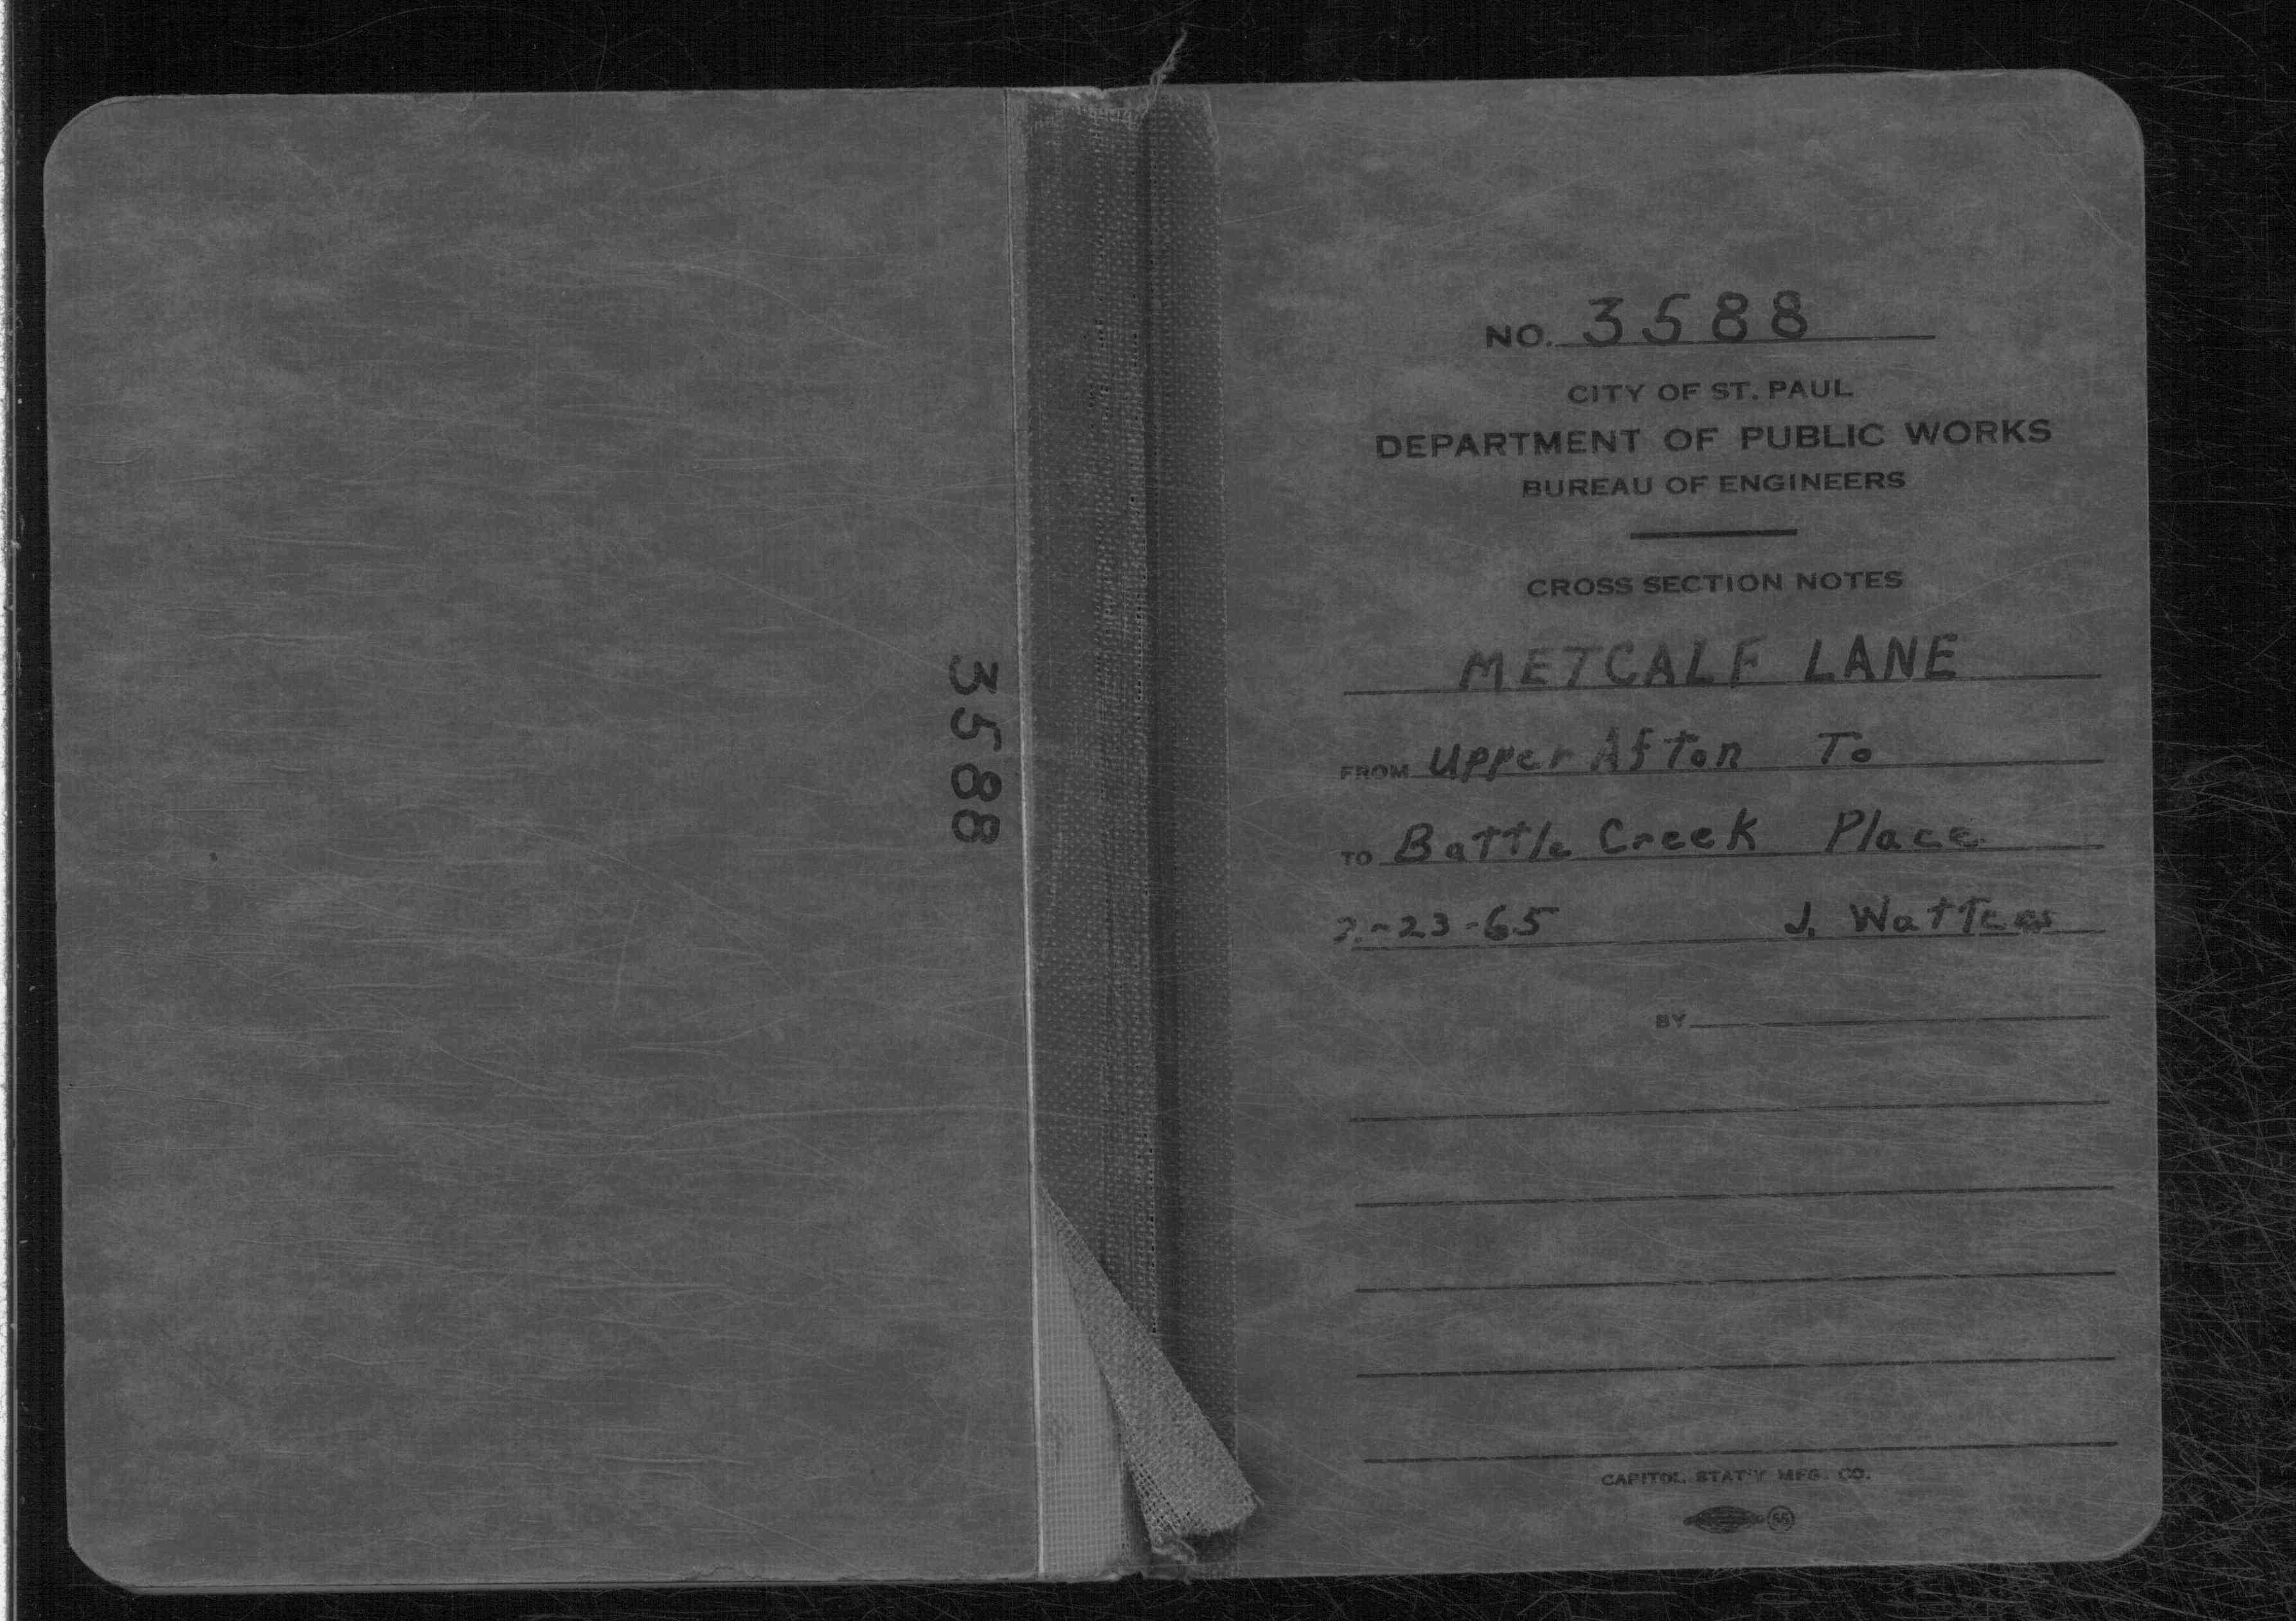 3588
NO. 3588
CITY OF ST. PAUL
DEPARTMENT OF PUBLIC WORKS
BUREAU OF ENGINEERS
CROSS SECTION NOTES
METCALF LANE
FROM Upper Afton To
TO Battle Creek Place
2-23-65 J.
BY
CAPITOL STAT'Y MFG. CO.